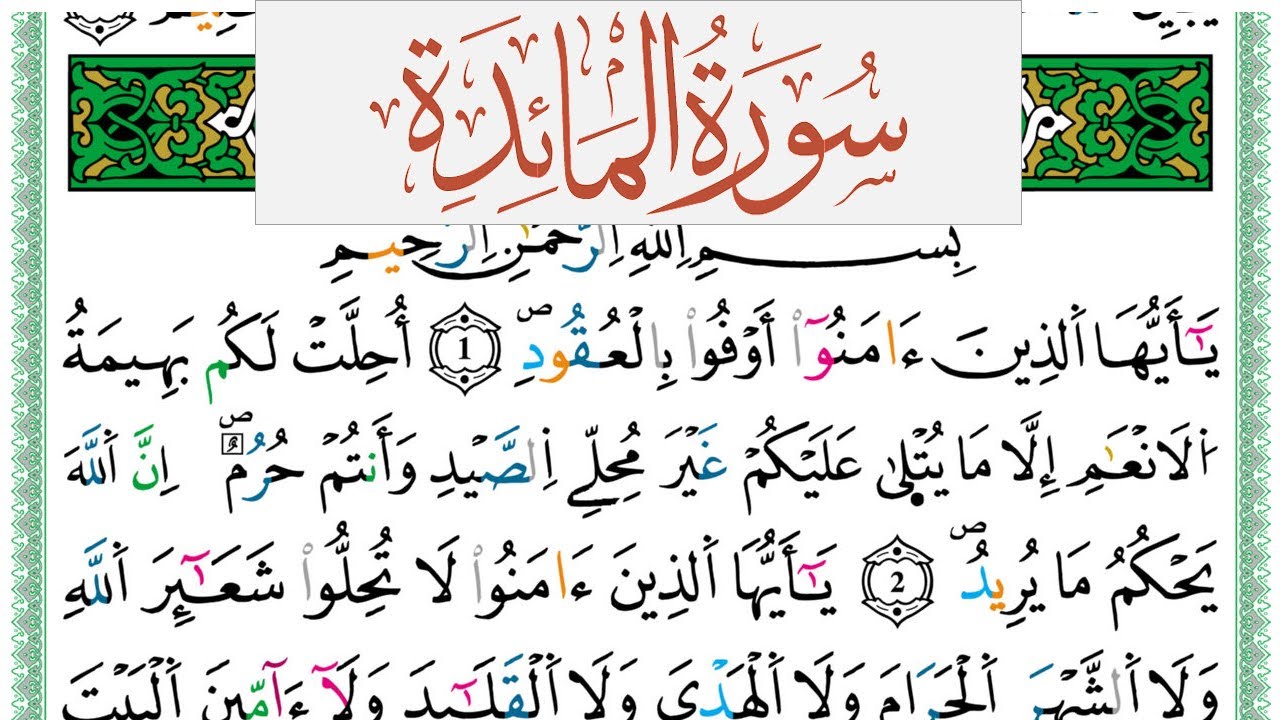 سُورَةُ الْمَائِدَةِ
بِسْمِ اِللَّهِ اِلرَّحْمَٰنِ اِلرَّحِيمِ
يَٰٓأَيُّهَا اَلذِينَ ءَامَنُوٓاْ أَوْفُواْ بِالْعُقُودِۖ 1 أُحِلَّتْ لَكُم بَهِيمَةُ
اُلَانْعَٰمِ إِلَّا مَا يُتْل۪ىٰ عَلَيْكُمْ غَيْرَ مُحِلِّے اِلصَّيْدِ وَأَنتُمْ حُرُمٌۖ اِنَّ اَللَّهَ
يَحْكُمُ مَا يُرِيدُۖ 2 يَٰٓأَيُّهَا اَلذِينَ ءَامَنُواْ لَا تُحِلُّواْ شَعَٰٓئِرَ اَللَّهِ
وَلَا اَلشَّهْرَ اَلْحَرَامَ وَلَا اَلْهَدْيَ وَلَا اَلْقَلَٰٓئِدَ وَلَآ ءَآمِّينَ اَلْبَيْتَ